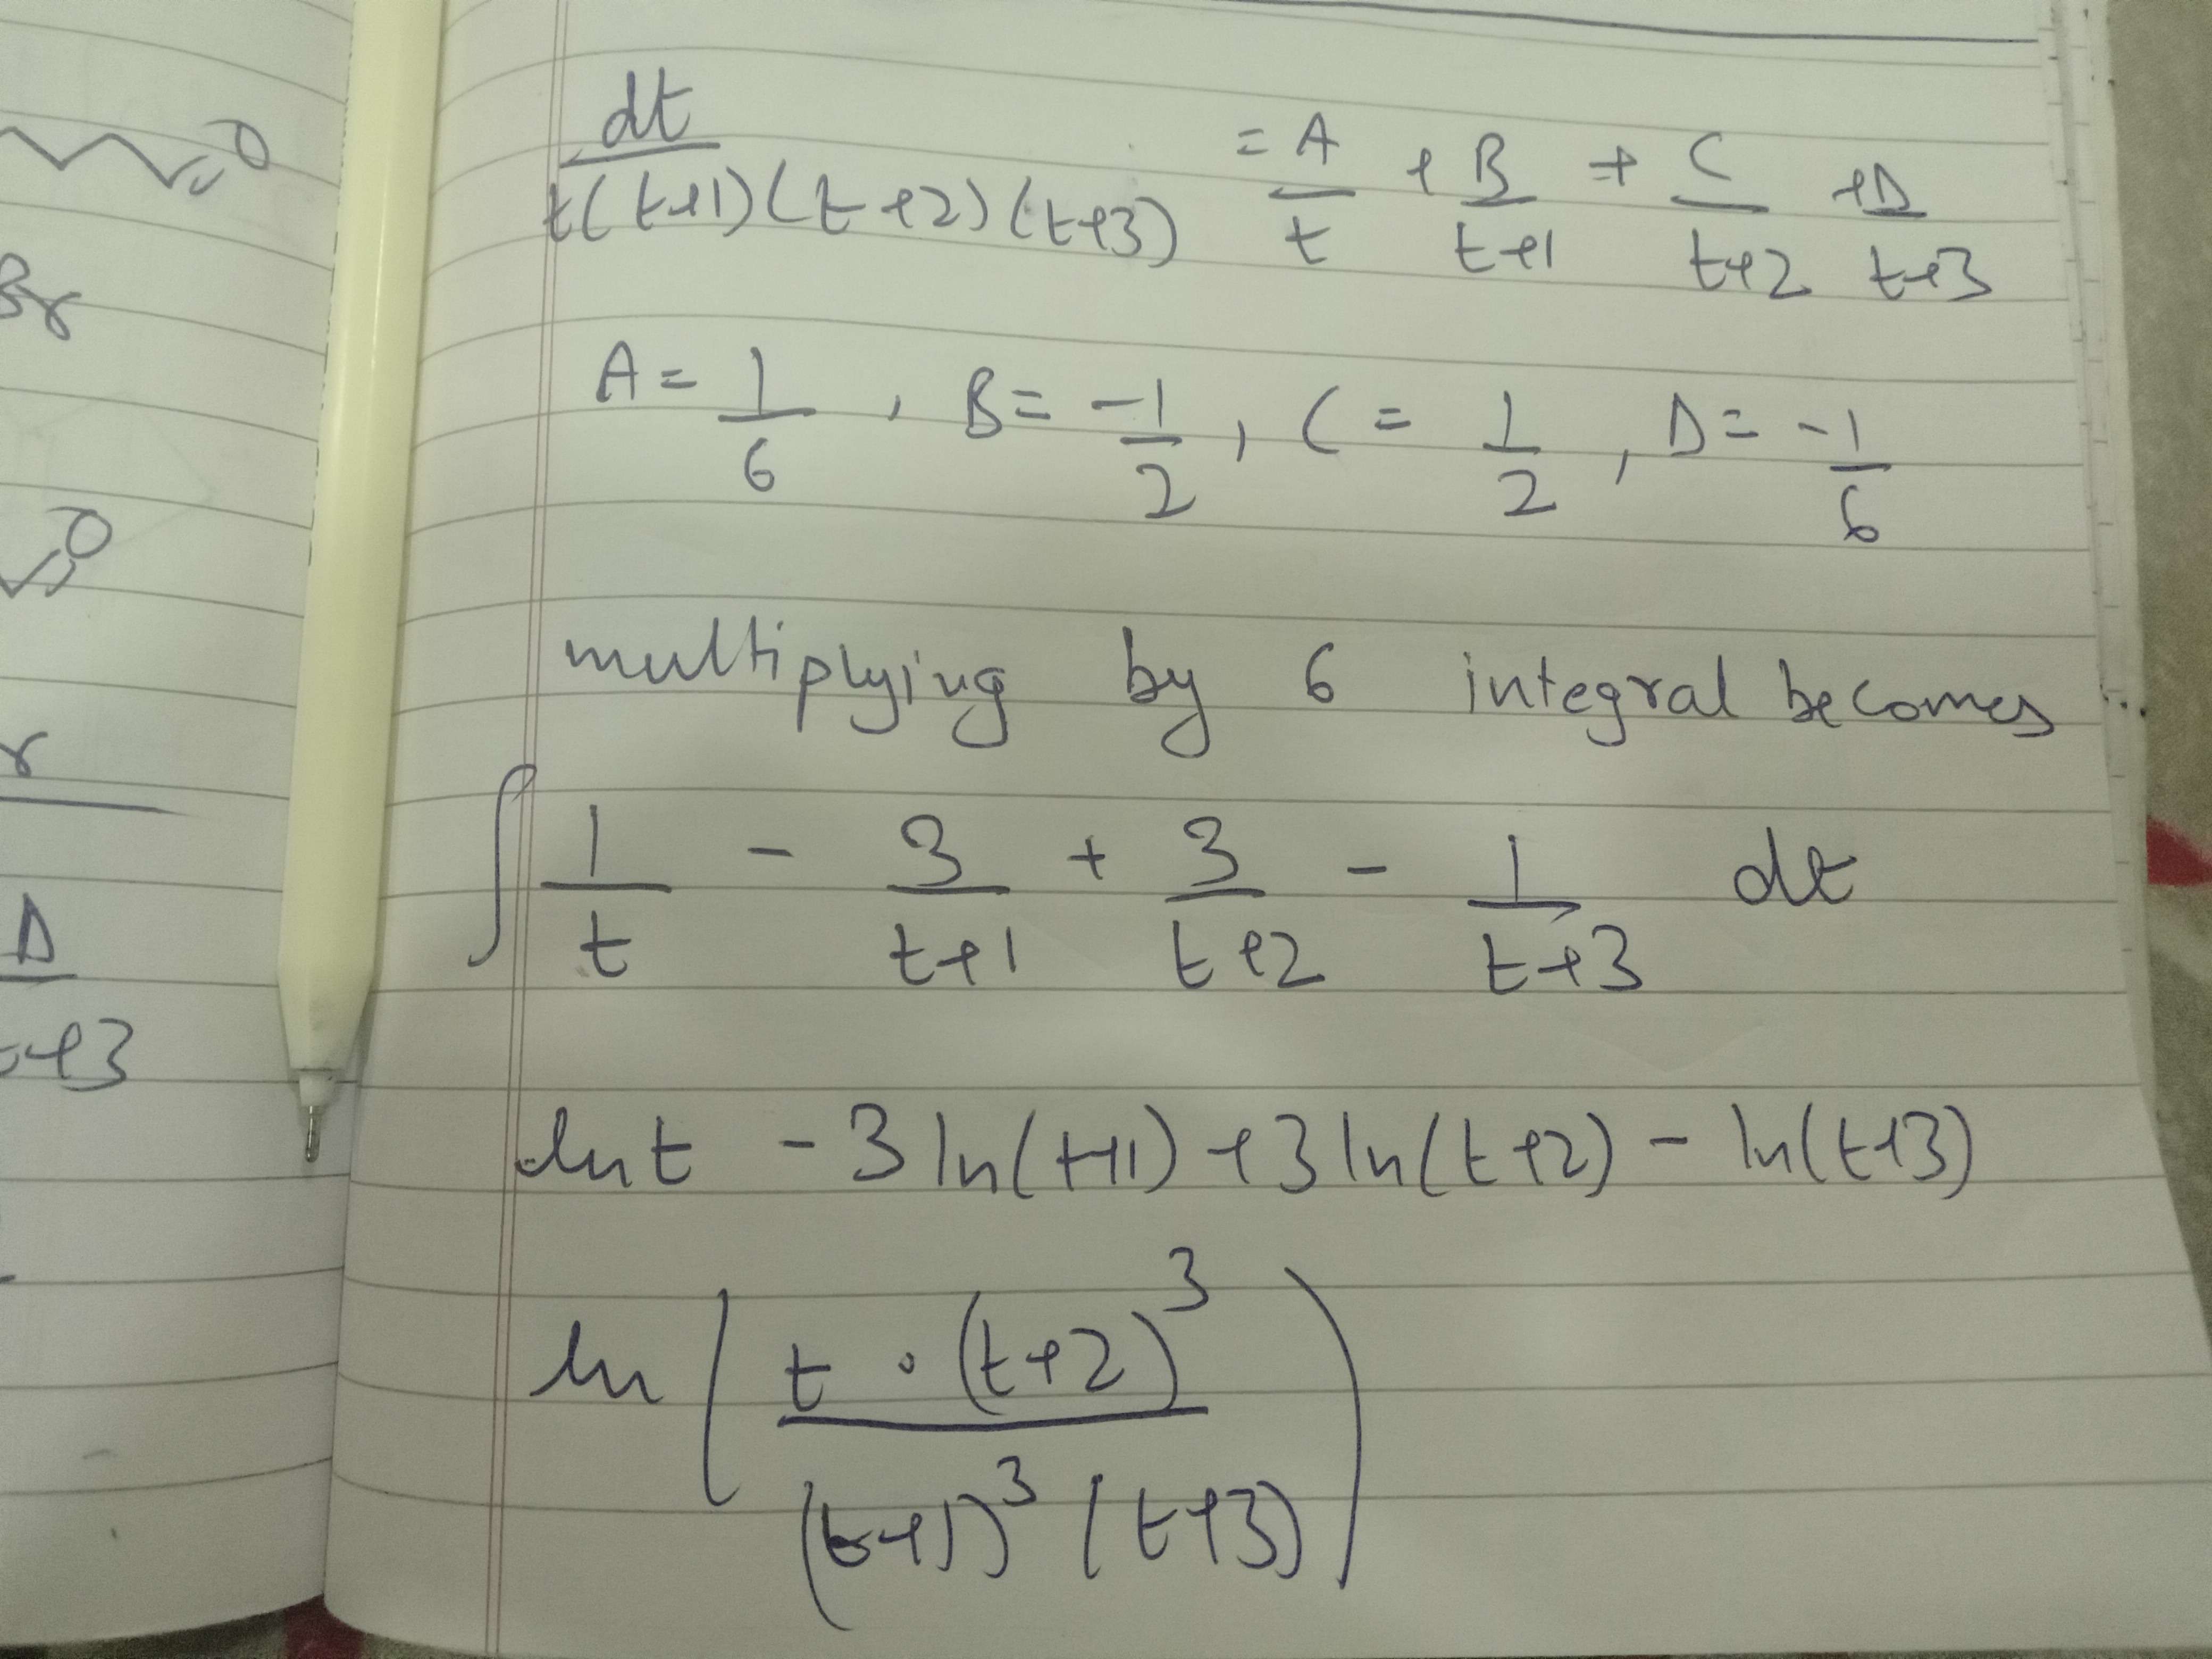 O
Br
O
r
D
t+3
dt/t(t+1)(t+2)(t+3) = A/t + B/t+1 + C/t+2 + D/t+3
A = 1/6 , B = -1/2 , C = 1/2 , D = -1/6
multiplying by 6 integral becomes
∫ 1/t - 3/t+1 + 3/t+2 - 1/t+3 dt
ln t - 3 ln(t+1) + 3 ln(t+2) - ln(t+3)
ln ( t · (t+2)³ / (t+1)³ (t+3) )